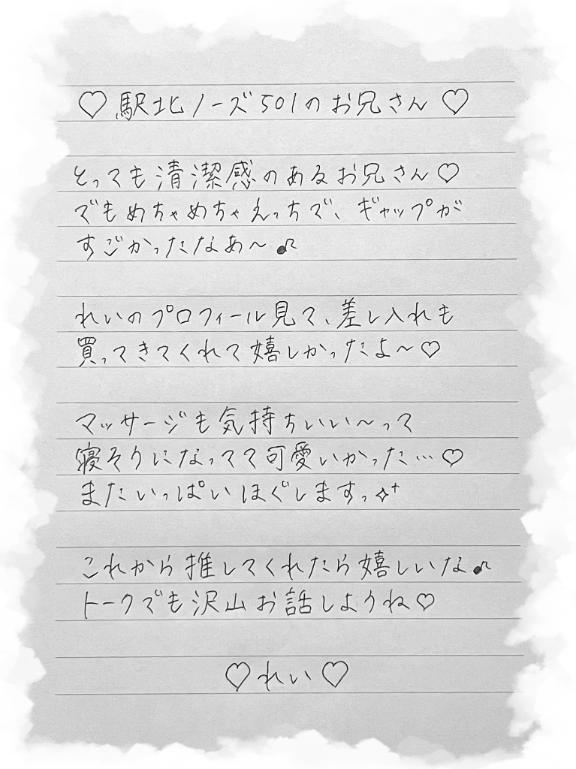 ♡駅北ノーズ501のお兄さん♡
とっても清潔感のあるお兄さん♡
でもめちゃめちゃえっちで、ギャップが
すごかったなあ〜♪
れいのプロフィール見て、差し入れも
買ってきてくれて嬉しかったよ〜♡
マッサージも気持ちいい〜って
寝そうになってて可愛いかった…♡
またいっぱいほぐしますっ✧⁺
これから推してくれたら嬉しいな♪
トークでも沢山お話しようね♡
♡れい♡